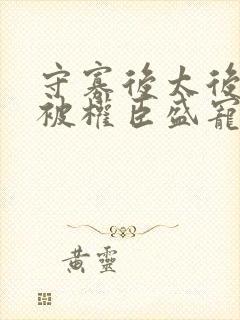 守寡後太後
被權臣盛寵
黃靈